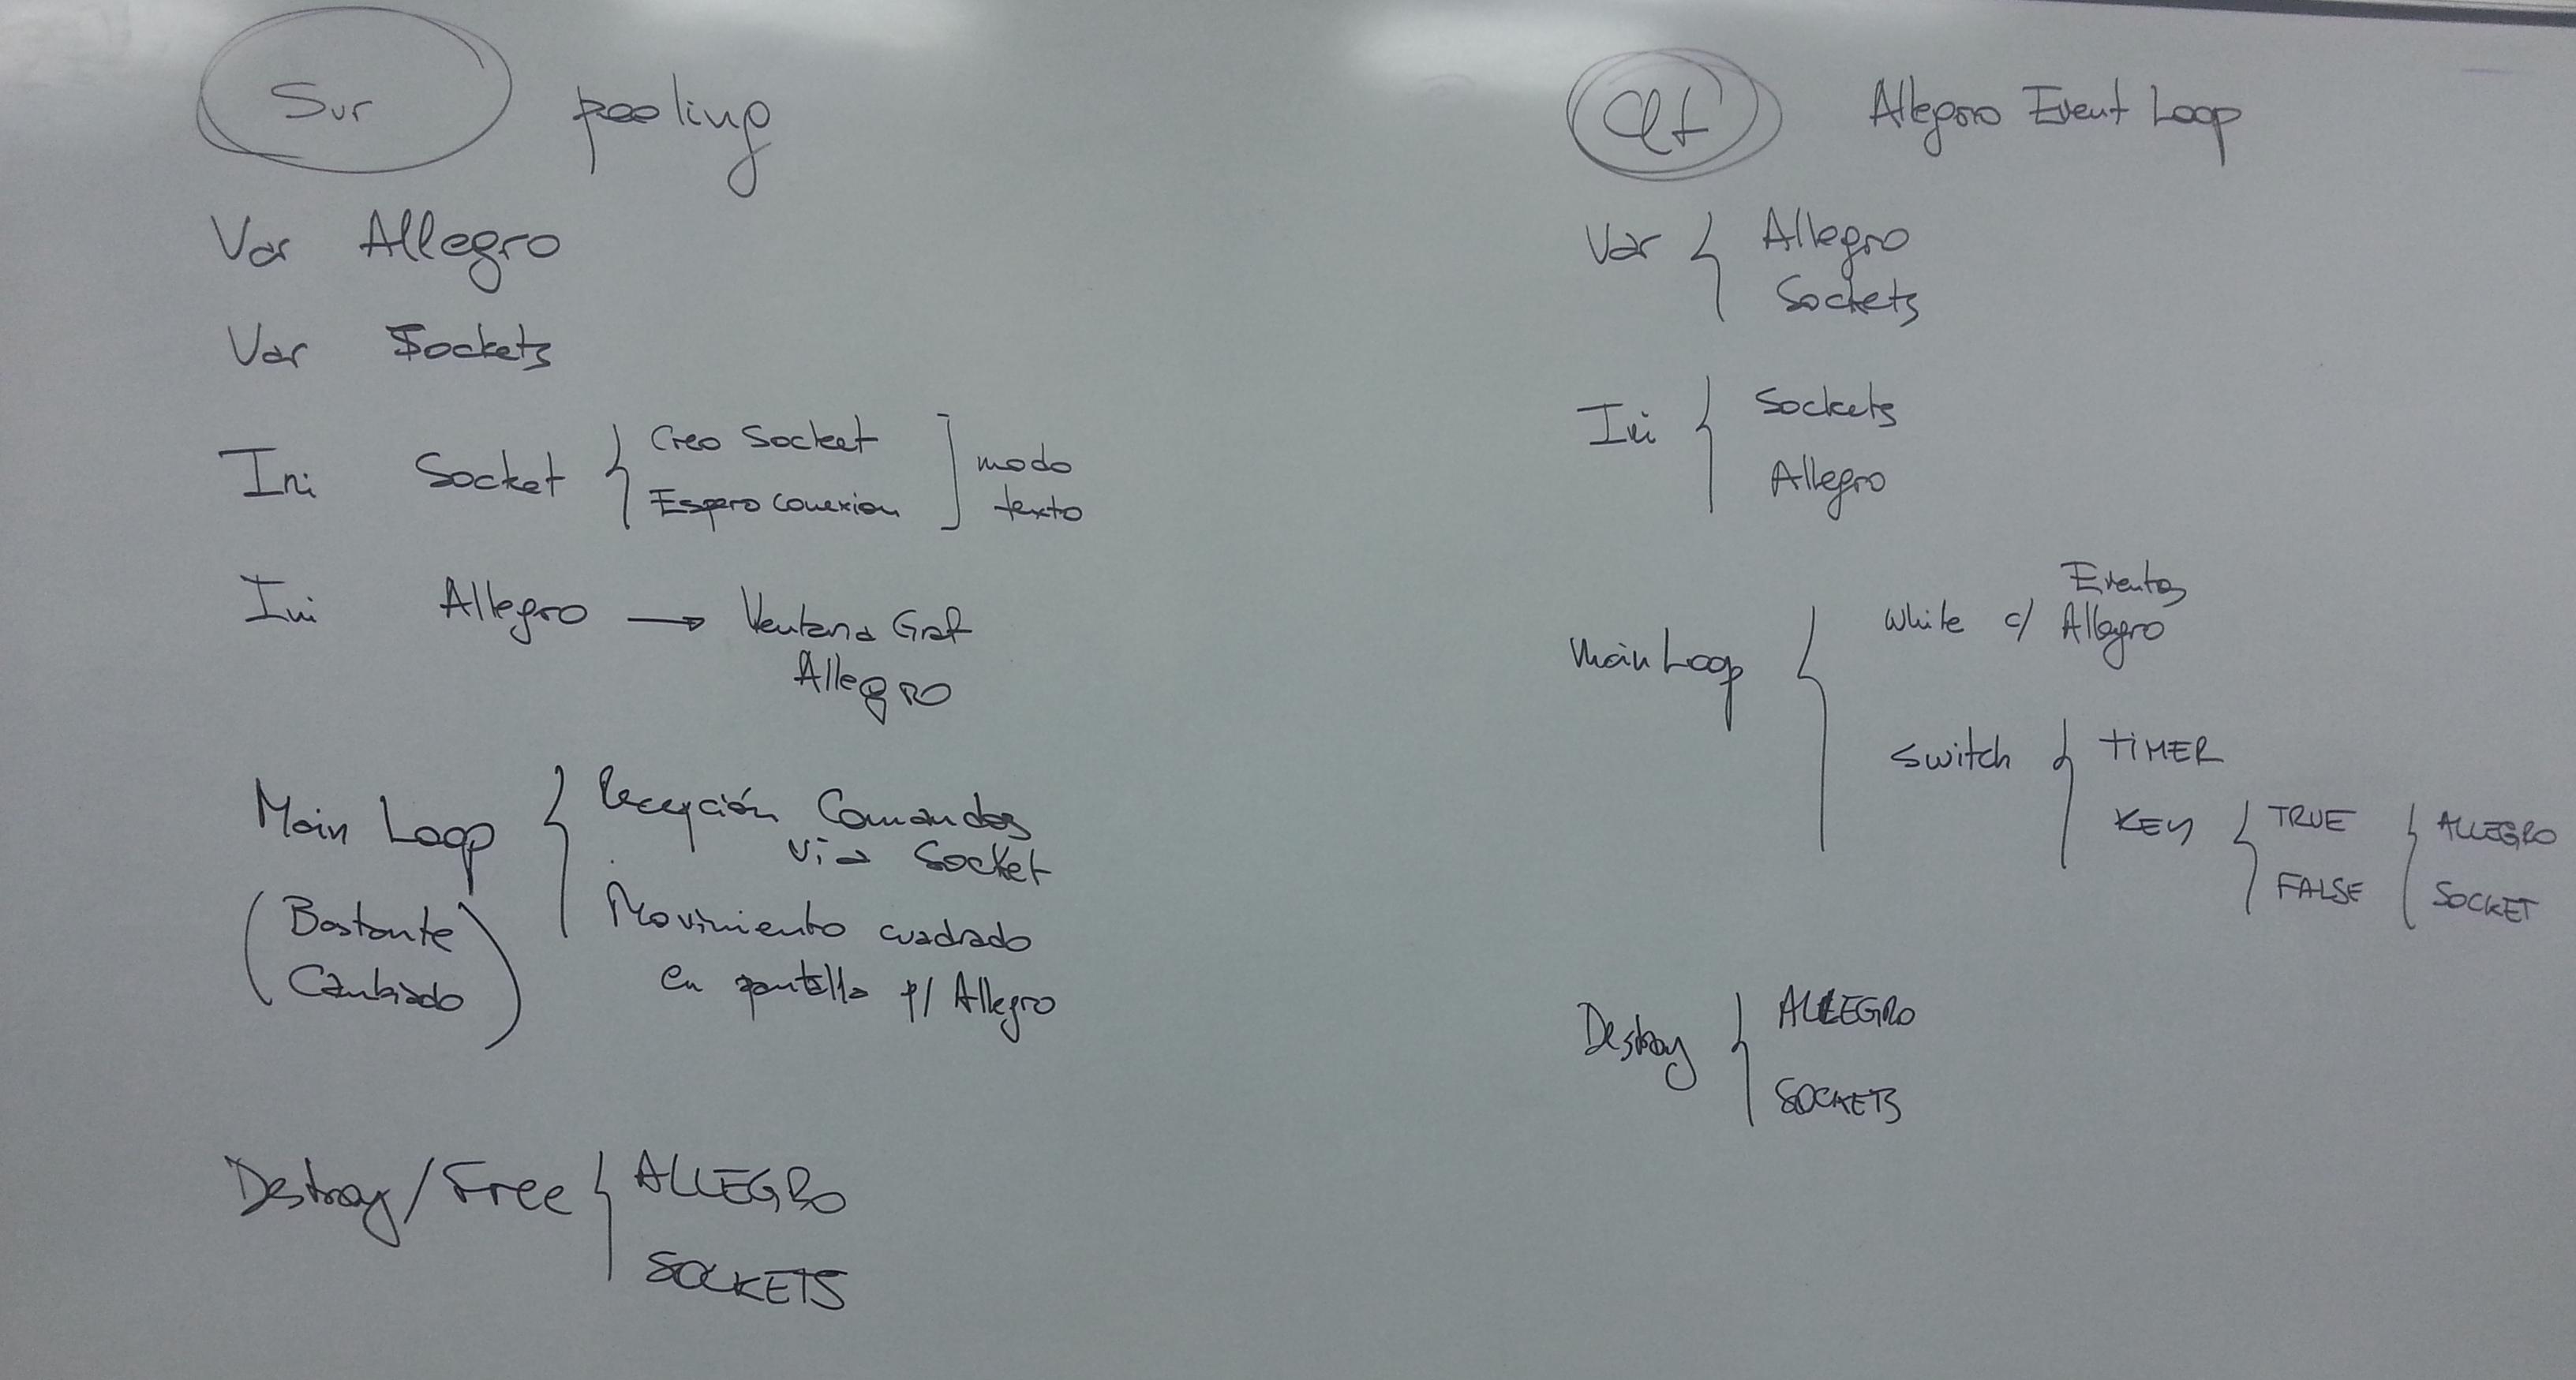 Svr pooling
Var Allegro
Var Sockets
Ini Socket { Creo Socket
Espero conexion ] modo
texto
Ini Allegro → Ventana Graf
Allegro
Main Loop { Recepción Comandos
via Socket
(Bastante
Cambiado)
Movimiento cuadrado
en pantalla p/ Allegro
Destroy/Free { ALLEGRO
SOCKETS
Clt Allegro Event Loop
Var { Allegro
Sockets
Ini { Sockets
Allegro
Main Loop { While c/ Eventos
Allegro
Switch { TIMER
KEY { TRUE { ALLEGRO
FALSE SOCKET
Destroy { ALLEGRO
SOCKETS